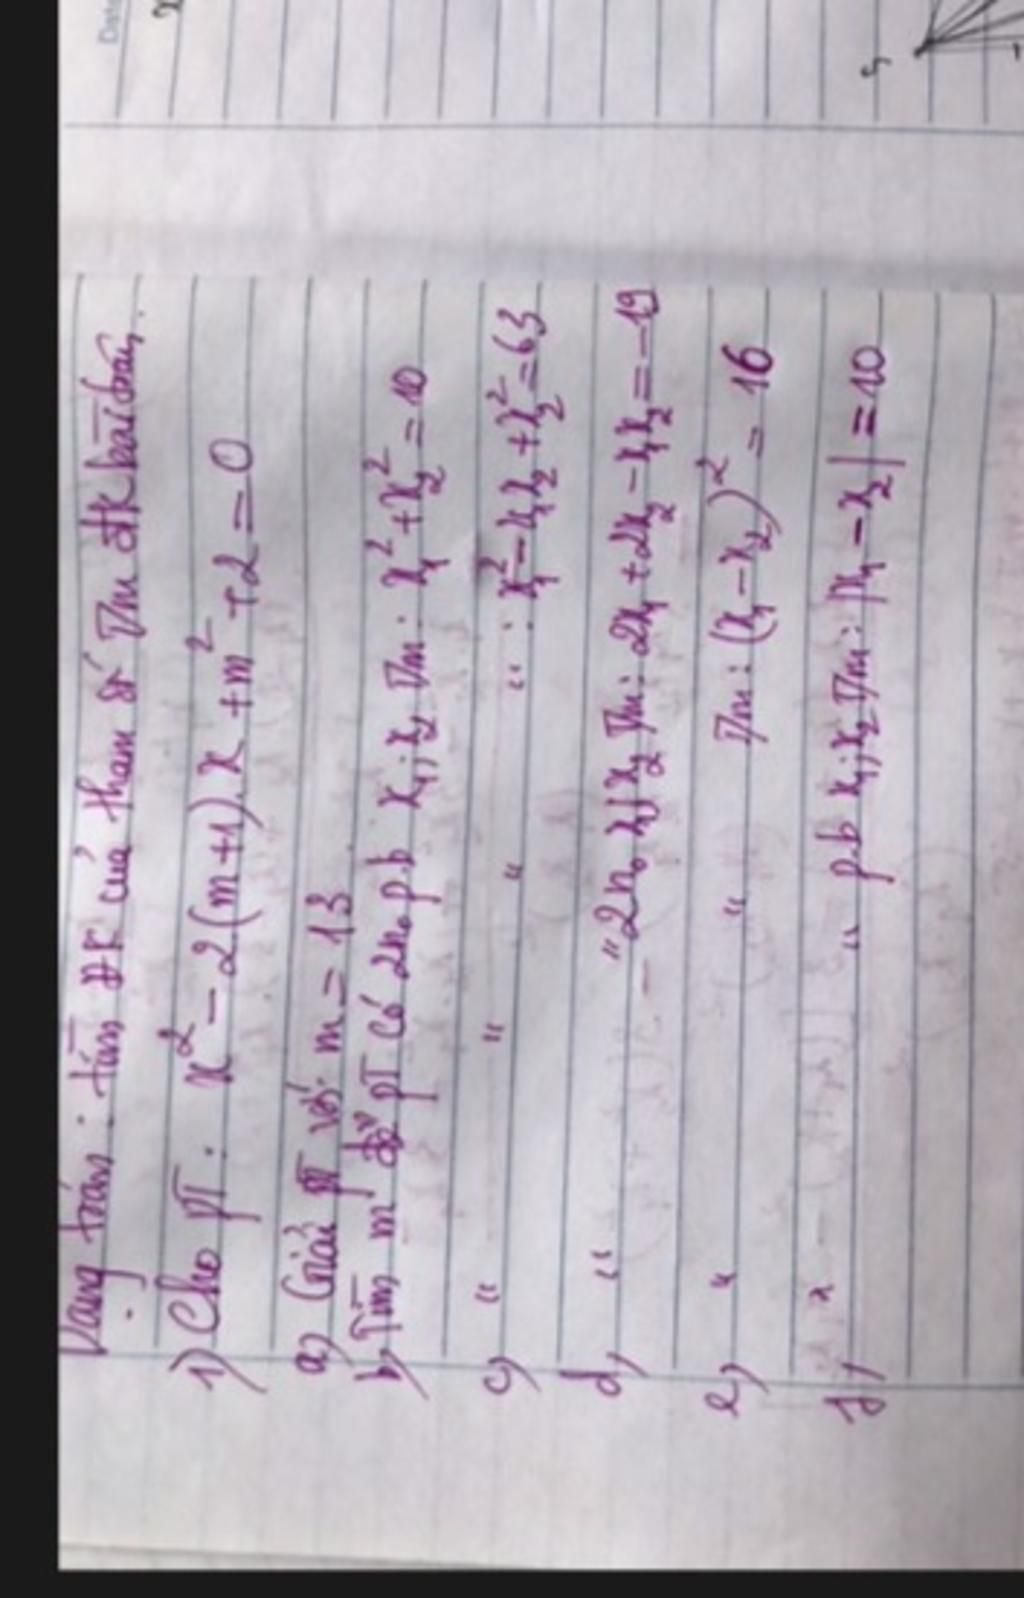 Dạng toán: tìm ĐK của tham số t/m đk bài toán.
1) Cho PT: x² - 2(m+1).x + m² + 2 = 0
a) Giải PT với m = 13
b) Tìm m để PT có 2 no pb x₁; x₂ t/m: x₁² + x₂² = 10
c) " " " " : x₁² - x₁x₂ + x₂² = 63
d) " " 2 no x₁; x₂ t/m: 2x₁ + 2x₂ - x₁x₂ = -19
e) " " t/m: (x₁ - x₂)² = 16
f) " " pb x₁; x₂ t/m: |x₁ - x₂| = 10
Date
S